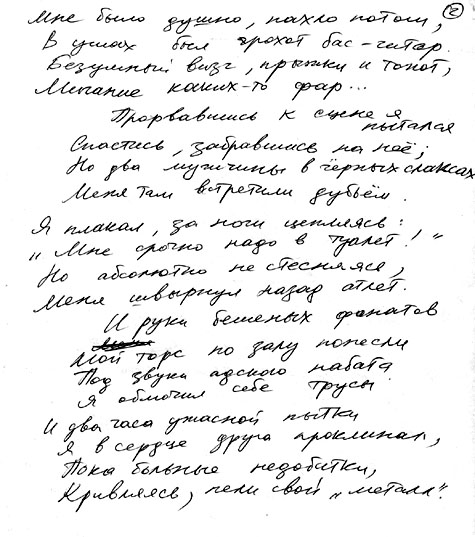 2
Мне было душно, пахло потом,
В ушах был грохот бас-гитар
Безумный визг, прыжки и топот,
Мигание каких-то фар...
Прорвавшись к сцене я
пытался
Спастись, забравшись на неё;
Но два мужчины в чёрных слаксах
Меня там встретили дубьём.
Я плакал, за ноги цепляясь:
„Мне срочно надо в туалет!"
Но абсолютно не стесняясь,
Меня швырнул назад атлет.
И руки бешеных фанатов
Мой торс по залу понесли
Под звуки адского набата
Я обмочил себе трусы
И два часа ужасной пытки
Я в сердце друга проклинал,
Пока больные недобитки,
Кривляясь, пели свой „металл".